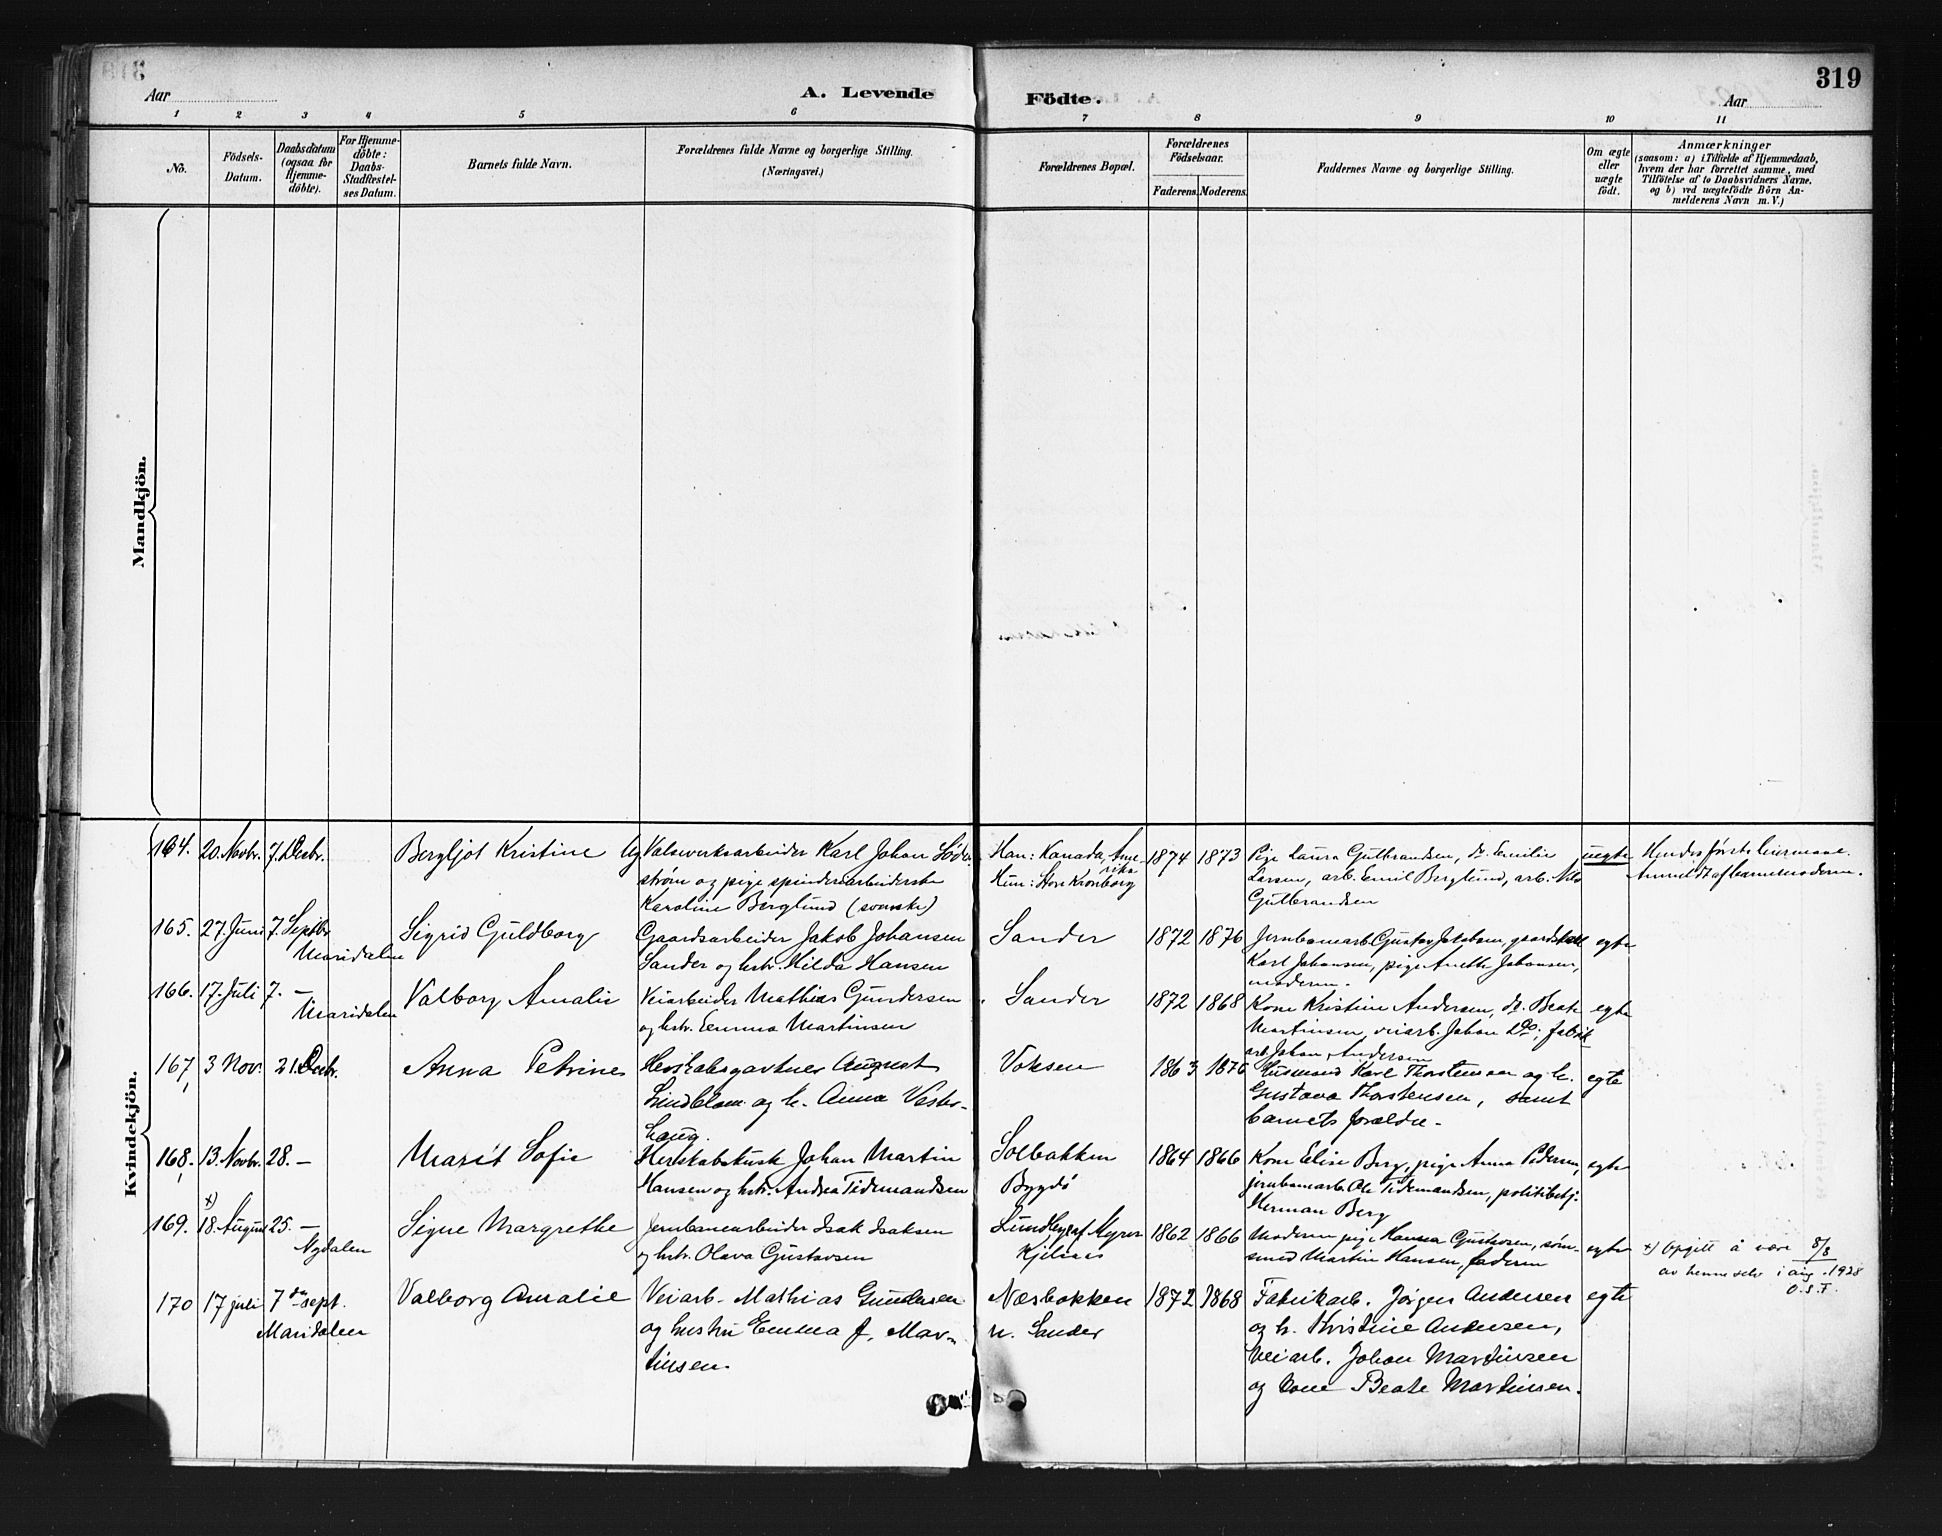 319
Aar
A. Levende
Födte.
Aar
1 2 3 4 5 6 7 8 9 10 11
No.
Födsels-
Datum.
Daabsdatum
(ogsaa for
Hjemme-
döbte).
For Hjemme-
döbte:
Daabs-
Stadfæstel-
ses Datum.
Barnets fulde Navn.
Forældrenes fulde Navne og borgerlige Stilling.
(Næringsvei.)
Forældrenes Bopæl.
Forældrenes
Födselsaar.
Faderens. Moderens.
Faddernes Navne og borgerlige Stilling.
Om ægte
eller
uægte
födt.
Anmærkninger
(saasom: a) i Tilfælde af Hjemmedaab,
hvem der har forrettet samme, med
Tilföielse af to Daabsvidners Navne,
og b) ved uægtefödte Börn An-
melderens Navn m. V.)
Mandkjön.
Kvindekjön.
164. 20. Novbr. 7. Decbr. Bergljot Kristine Ug Valseverksarbeider Karl Johan Söder-
strøm og pige spinderiarbeiderske
Karoline Berglund (svenske)
Han: Kanada, Ame-
rika
Hun: Store Kronborg
1874 1873
Pige Laura Gulbrandsen, do. Emilie
Larsen, arb. Emil Berglund, arb. Nils
Gulbrandsen
uegte
Hendes første leiermaal.
Anmeldt af barnemoderen.
165. 27. Juni 7. Septbr.
Maridalen
Sigrid Guldborg
Gaardsarbeider Jakob Johansen
Sander og hstr. Hilda Hansen
Sander
1872 1876
Jernbanearb. Gustav Jakobsen, gaardskarl
Karl Johansen, pige Anette Johansen,
moderen.
egte
166. 17. Juli 7. —
Maridalen
Valborg Amalie
Veiarbeider Mathias Gundersen
og hstr. Emma Martinsen
Sander
1872 1868
Kone Kristine Andersen, do. Beate
Martinsen, veiarb. Johan do; fabrik
arb. Johan Andersen
egte
167, 3 Nov. 21. Decbr.
Anna Petrine
Herskabsgartner August
Lindblom og h. Anna Vester-
haug.
Voksen
1863 1876
Husmand Karl Thorstensen og h.
Gustava Thorstensen, samt
barnets forældre.
egte
168, 13. Novbr. 28. —
Marit Sofie
Herskabskusk Johan Martin
Hansen og hstr. Andrea Tidemandsen
Solbakken
Bygdö
1864 1866
Kone Elise Berg, pige Anna Pedersen,
jernbanearb. Ole Tidemandsen, politibetj.
Herman Berg
egte
x)
169. 18. August 25. —
Nydalen
Signe Margrethe
Jernbanearbeider Isak Isaksen
og hstr. Olava Gustavsen
Kjelsaas
1862 1866
Moderen pige Hanna Gustavsen, søm-
smed Martin Hansen, faderen
egte
x) Opgitt å være 8/8
av henne selv i aug. 1928
O.S.F.
170 17 juli 7de sept.
Maridalen
Valborg Amalie
Veiarb. Mathias Gundersen
og hustru Emma J. Mar-
tinsen.
Næsbakken
u. Sander
1872 1868
Fabrikarb. Jörgen Andersen
og h. Kristine Andersen,
Veiarb. Johan Martinsen
og kone Beate Martinsen.
egte